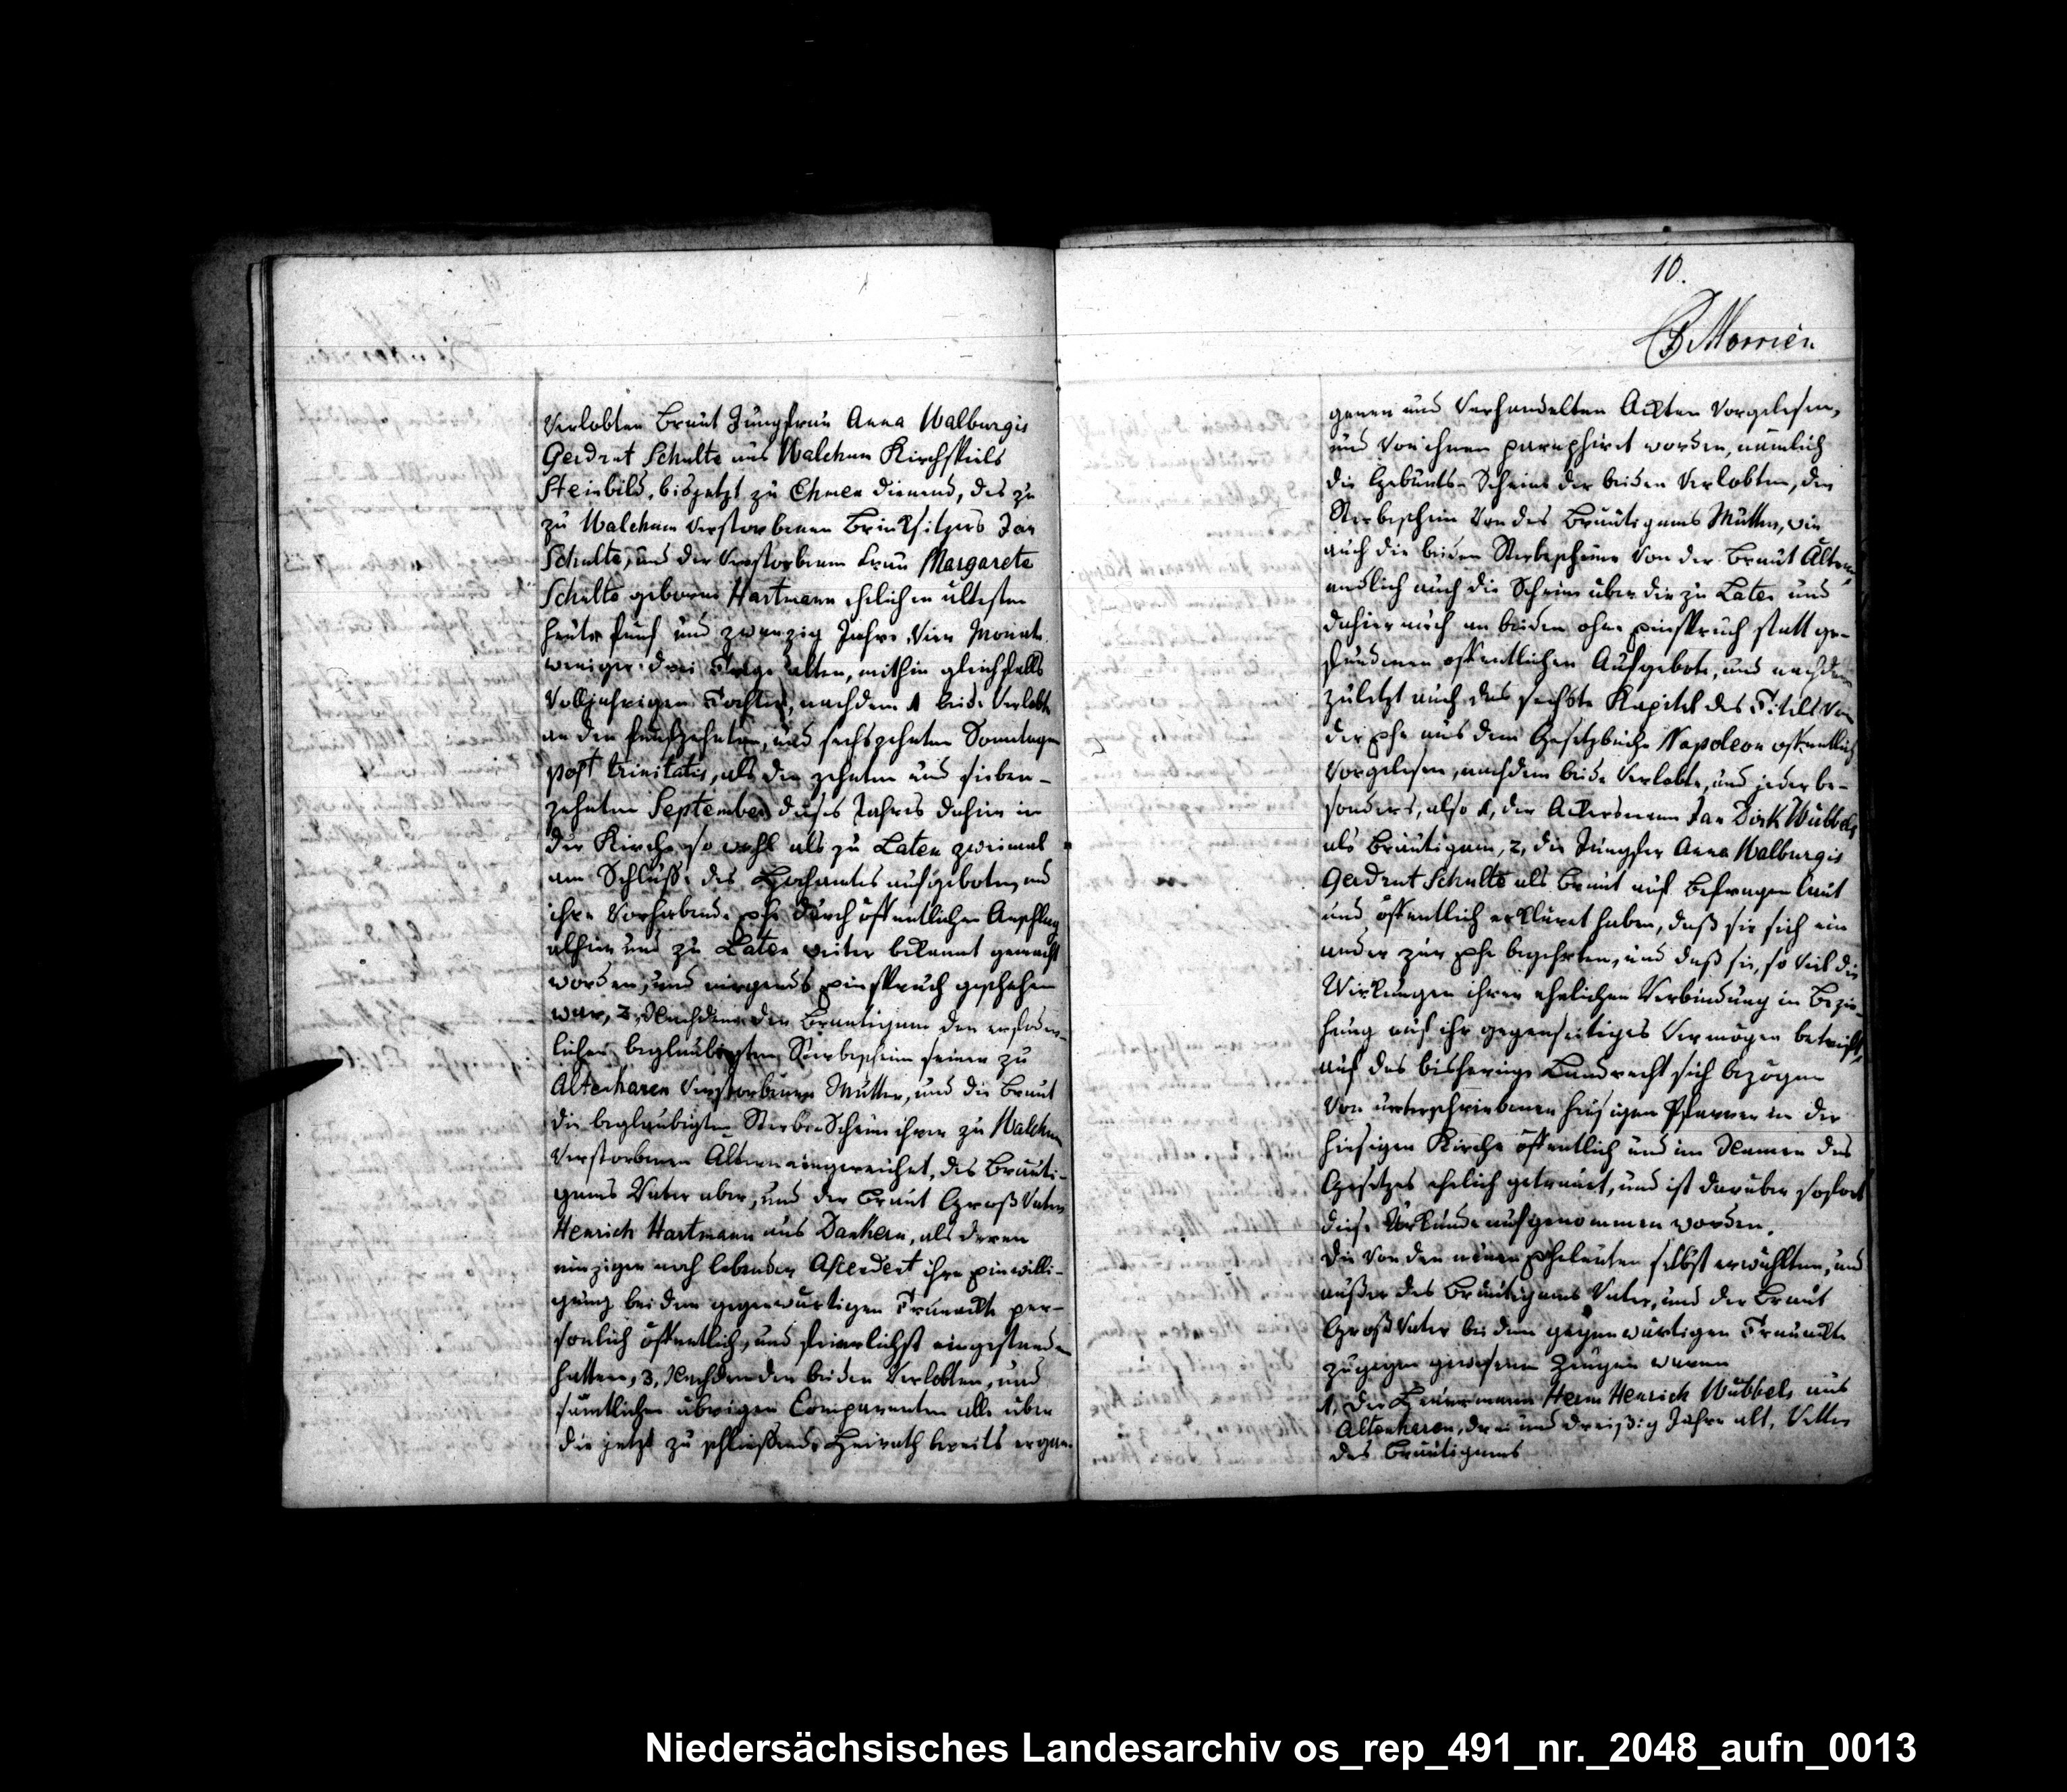 Verlobten Braut Jungfrau Anna Walburgis
Gerdrut Schulte aus Walchum Kirchspiels
Steinbild, bisjetzt zu Ehmen dienend, des zu
zu Walchum verstorbenen Brinksitzers Jan
Schulte, und der verstorbenen Frau Margarete
Schulte geborne Hartmann ehelichen ältesten
heute fünf und zwanzig Jahre, vier Monate
weniger drei Tage alten, mithin gleichfalls
volljährigen Tochter, nachdem 1 beide Verlobte
an den funfzehnten, und sechszehnten Sonntagen
post trinitatis, als den zehnten und sieben-
zehnten September dieses Jahres dahier in
der Kirche so wohl als zu Laten zweimal
am Schlusse des Hochamtes aufgeboten, und
ihre vorhabende Ehe durch öffentlichen Anschlag
alhier und zu Laten weiter bekannt gemacht
worden, und nirgends Einspruch geschehen
war, 2, Nachdem der Brautigam den erfoder-
lichen beglaubigten Sterbeschein seiner zu
Altenharen verstorbenen Mutter, und die Braut
die beglaubigten Sterbe-Scheine ihrer zu Walchum
verstorbenen Ältern eingereichet, des Bräuti-
gams Vater aber, und der Braut Groß Vater
Henrich Hartmann aus Dankern, als deren
einziger noch lebender Ascendent ihre Einwilli-
gung bei dem gegenwärtigen Trauackte per-
sönlich öffentlich, und feierlichst eingestanden
hatten, 3, Nachdem den beiden Verlobten, und
sämtlichen übrigen Comparenten alle über
die jetzt zu schließende Heirath bereits ergan-
10.
Morrien
genen und verhandelten Ackten vorgelesen,
und von ihnen paraphirt worden, nämlich
die Geburts-Scheine der beiden Verlobten, der
Sterbeschein von des Bräutigams Mutter, wie
auch die beiden Sterbescheine von der Braut Ältern
endlich auch die Scheine über die zu Laten und
dahier nach an beiden ohne Einspruch statt ge-
fundenen öffentlichen Aufgebote, und nachdem
zuletzt auch das sechste Kapitel des Titels von
der Ehe aus dem Gesetzbuche Napoleon öffentlich
vorgelesen, nachdem beide Verlobte, und jeder be-
sonders, also 1, der Ackersmann Jan Dirk Wübbels
als Bräutigam, 2, die Jungfer Anna Walburgis
Gerdrut Schulte als Braut auf Befragen laut
und öffentlich erkläret haben, daß sie sich ein
ander zur Ehe begehrten, und daß sie, so viel die
Wirkungen ihrer ehelichen Verbindung in Bezie-
hung auf ihr gegenseitiges Vermögen betrifft,
auf das bisherige Landrecht sich bezögen
von unterschriebenen hiesigen Pfarrer in der
hiesigen Kirche öffentlich und im Namen des
Gesetzes ehelich getrauet, und ist darüber sofort
diese Urkunde aufgenommen worden.
Die von den neuen Eheleuten selbst erwählten, und
außer des Bräutigams Vater, und der Braut
Groß Vater bei dem gegenwärtigen Trauackte
zugegen gewesenen Zeugen waren
1, Der Heuermann Herm Henrich Wübbels aus
Altenharen, drei und dreißig Jahre alt, Vetter
des Bräutigams
Niedersächsisches Landesarchiv os_rep_491_nr._2048_aufn_0013